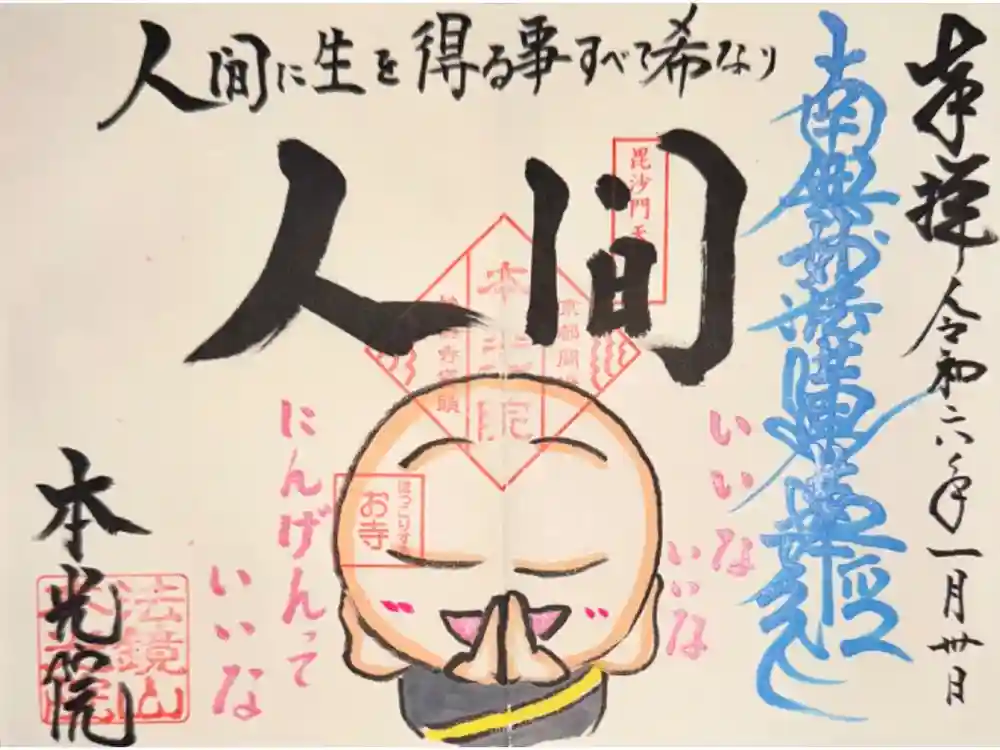 奉拝
令和六年一月卅日
南無妙法蓮華経
人間に生を得る事すべて希なり
人間
毘沙門天
本光院
京都
いいな
いいな
にんげんって
いいな
ほっこりする
お寺
本光院
法鏡山